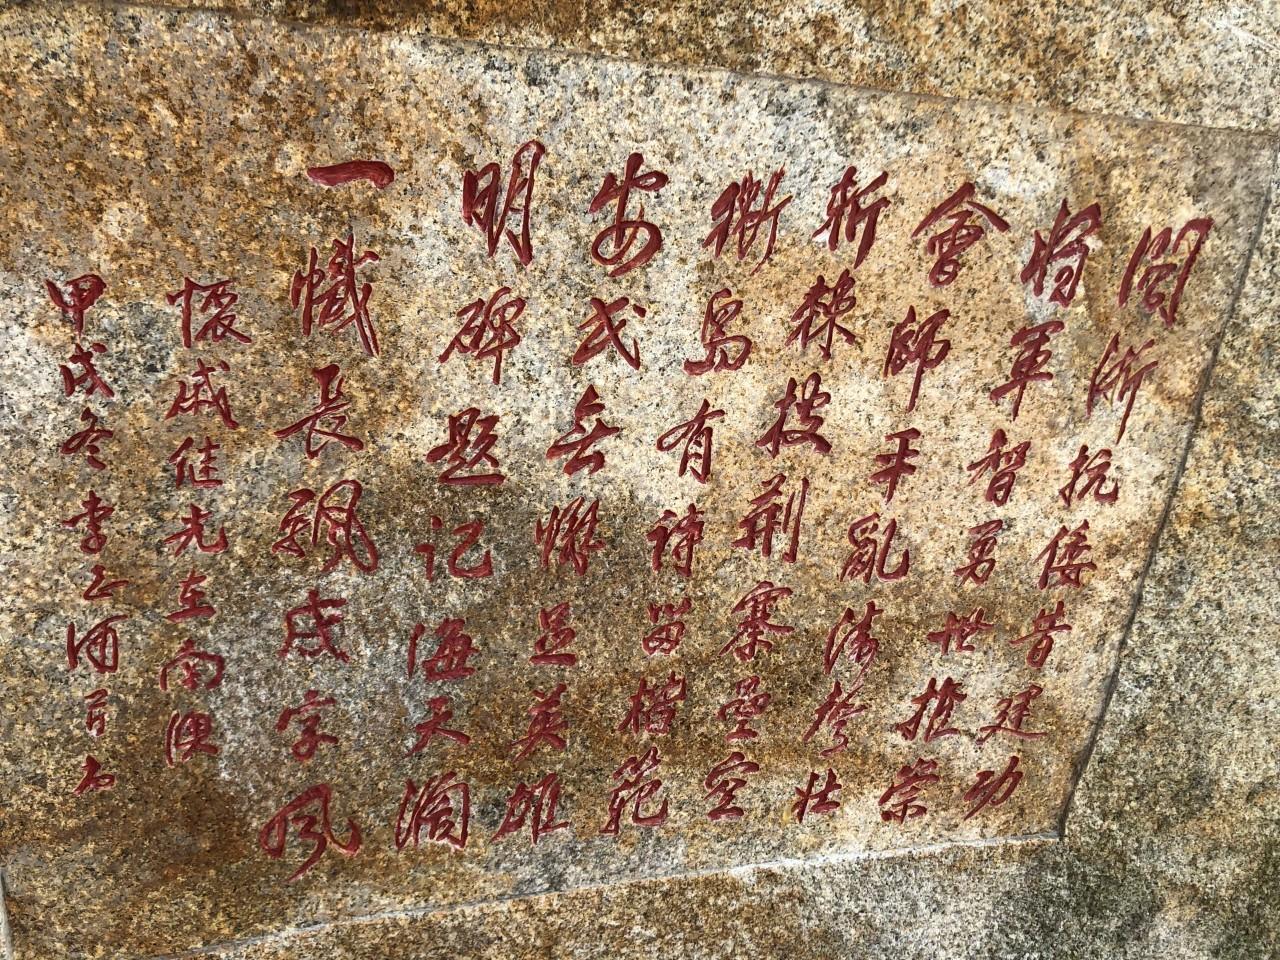 閩浙抗倭昔建功
将軍智勇世推崇
會師平亂濤誇壯
斬棘披荆寨壘空
衛島有詩留楷範
安民無足英雄
明碑題記海天闊
一幟長飄戚字風
懷戚继光在南澳
甲戌冬李